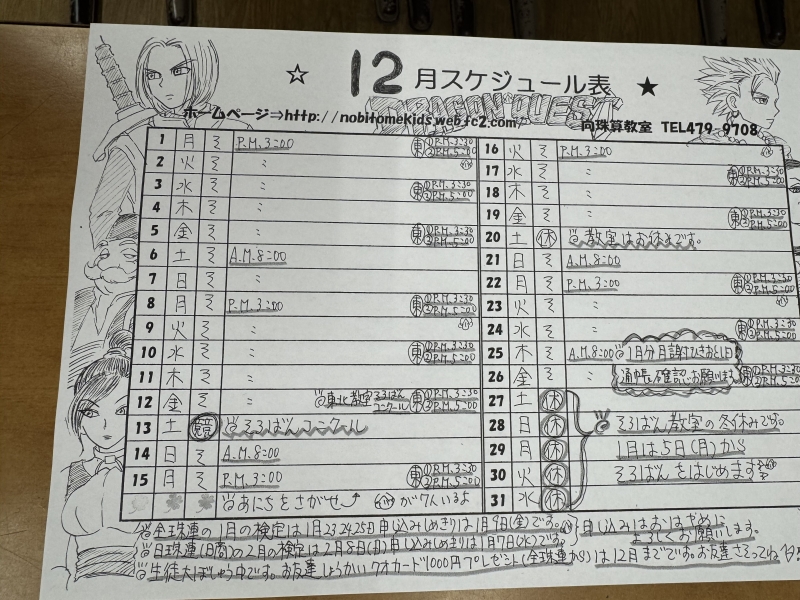 ☆ 12月スケジュール表 ★
DRAGON QUEST
ホームページ⇒http://nobitomekids.web.fc2.com/ 向珠算教室 TEL479-9708
1 月 そ P.M.3:00 東 ①P.M.3:30 ②P.M.5:00
2 火 そ 〃
3 水 そ 〃 東 ①P.M.3:30 ②P.M.5:00
4 木 そ 〃
5 金 そ 〃 東 ①P.M.3:30 ②P.M.5:00
6 土 そ A.M.8:00
7 日 そ 〃
8 月 そ P.M.3:00 東 ①P.M.3:30 ②P.M.5:00
9 火 そ 〃
10 水 そ 〃 東 ①P.M.3:30 ②P.M.5:00
11 木 そ 〃
12 金 そ 〃 東北教室そろばんコンクール 東 ①P.M.3:30 ②P.M.5:00
13 土 競 そろばんコンクール
14 日 そ A.M.8:00
15 月 そ P.M.3:00 東 ①P.M.3:30 ②P.M.5:00
あにちをさがせ が7人いるよ
16 火 そ P.M.3:00
17 水 そ 〃 東 ①P.M.3:30 ②P.M.5:00
18 木 そ 〃
19 金 そ 〃 東 ①P.M.3:30 ②P.M.5:00
20 土 休 教室はお休みです。
21 日 そ A.M.8:00
22 月 そ P.M.3:00 東 ①P.M.3:30 ②P.M.5:00
23 火 そ 〃
24 水 そ 〃 東 ①P.M.3:30 ②P.M.5:00
25 木 そ A.M.8:00 1月分月謝ひきおとし日
26 金 そ 通帳確認、お願いします 東 ①P.M.3:30 ②P.M.5:00
27 土 休
28 日 休 そろばん教室の冬休みです。
29 月 休 1月は5日(月)から
30 火 休 そろばんをはじめます
31 水 休
全珠連の1月の検定は1月23.24.25日 申し込みしめきりは1月9日(金)です。
日珠連(日商)の2月の検定は2月8日(日) 申し込みしめきりは1月7日(水)です。
申し込みはおはやめに
よろしくお願いします。
生徒大ぼしゅう中です。お友達しょうかいクオカード1000円プレゼント(全珠連から)は12月までです。お友達さそってね